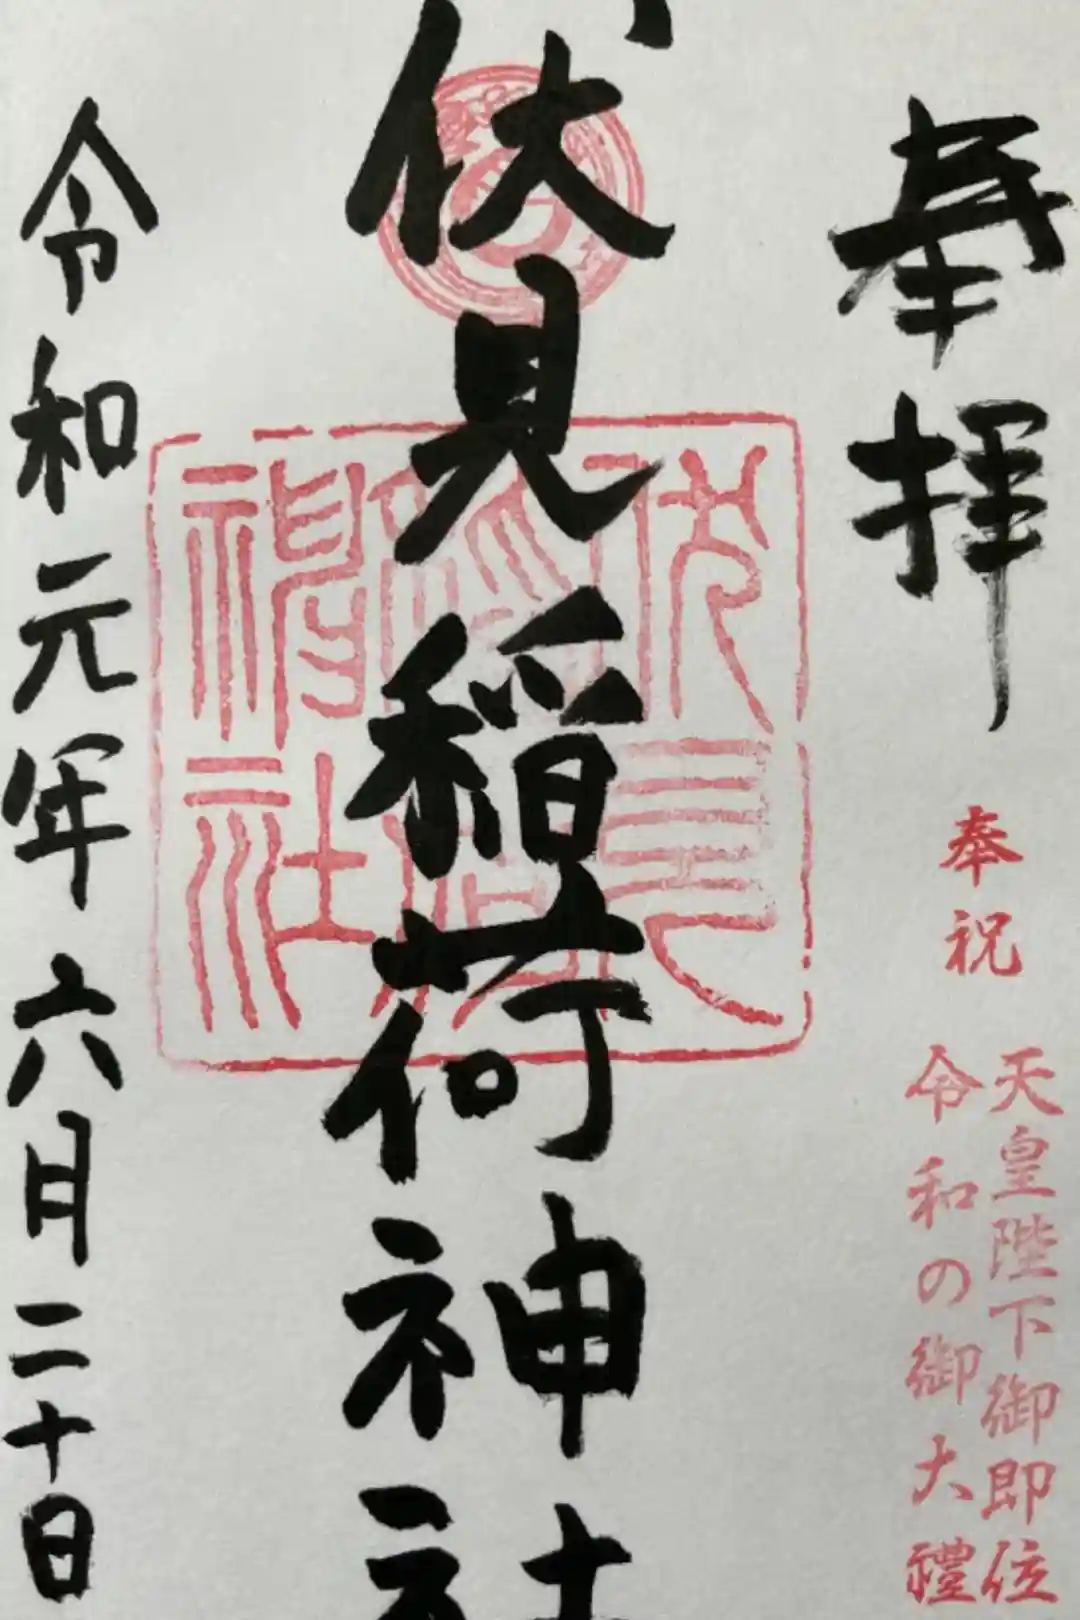 奉拝
奉祝
天皇陛下御即位
令和の御大禮
伏見稲荷神社
伏見稲荷神社
令和元年六月二十日